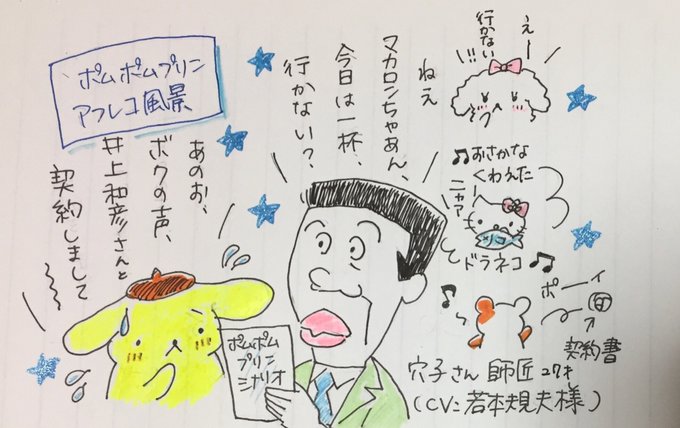 ポムポムプリン
アフレコ風景
えー
行かない!!
ねえ
マカロンちゃあん、
今日は一杯、
行かない?
あのお、
ボクの声、
井上和彦さんと
契約しまして
♫おさかな
くわえた
ニャア
ドラネコ♫
ツナ
♪
ポーイ
契約書
ポムポム
プリン
シナリオ
穴子さん 師匠 27才
(CV:若本規夫様)